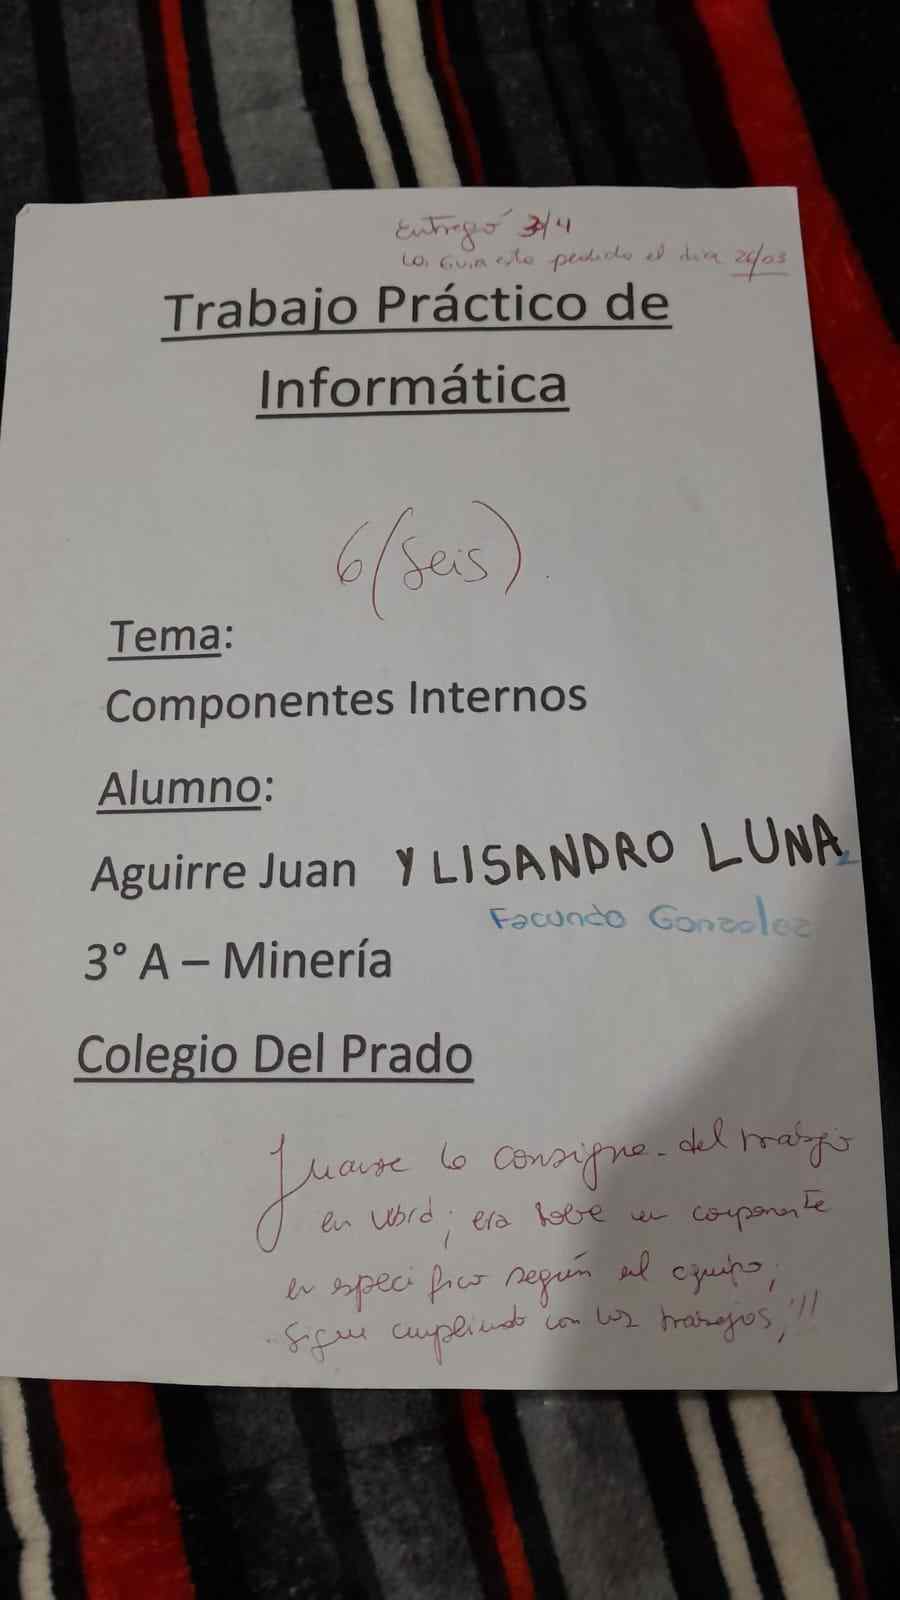 Entregó 3/4
La Guia esta pedido el dia 26/03
Trabajo Práctico de
Informática
6 (Seis).
Tema:
Componentes Internos
Alumno:
Aguirre Juan Y LISANDRO LUNA
Facundo Gonzalez
3° A – Minería
Colegio Del Prado
la consigna del trabajo
en Word; era sobre un componente
en especifico según el equipo;
Sigue cumpliendo con los trabajos,!!!